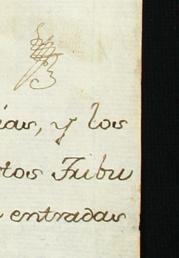 ias, y los
tos Tribu
entradas